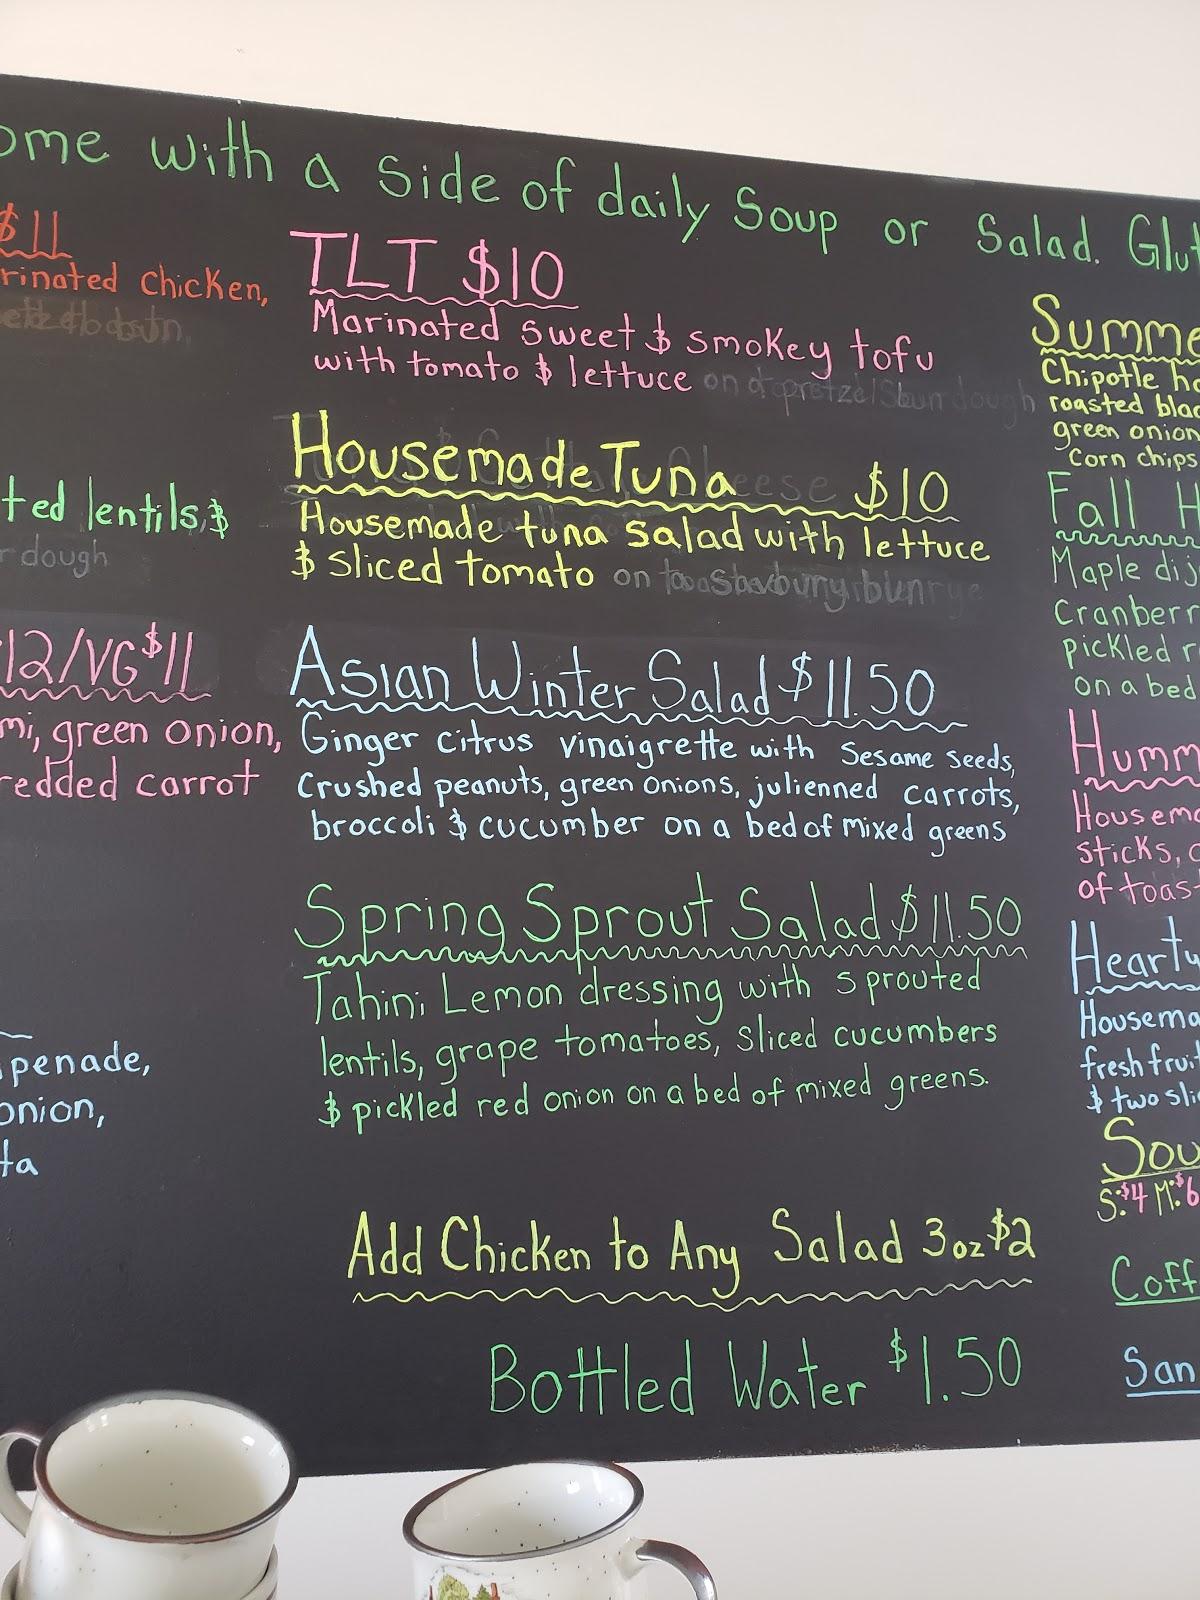 ome with a Side of daily Soup or Salad. Glut
$11
rinated chicken,
ted lentils, &
r dough
12/VG $11
mi, green onion,
redded carrot
penade,
onion,
ta
TLT $10
Marinated sweet & smokey tofu
with tomato & lettuce
Housemade Tuna $10
Housemade tuna salad with lettuce
& sliced tomato
Asian Winter Salad $11.50
Ginger citrus vinaigrette with sesame seeds,
crushed peanuts, green onions, julienned carrots,
broccoli & cucumber on a bed of mixed greens
Spring Sprout Salad $11.50
Tahini Lemon dressing with sprouted
lentils, grape tomatoes, sliced cucumbers
& pickled red onion on a bed of mixed greens.
Add Chicken to Any Salad 3oz $2
Bottled Water $1.50
Summe
Chipotle ho
roasted blac
green onion
Corn chips
Fall H
Maple dij
Cranberr
pickled r
on a bed
Humm
Housema
sticks, c
of toast
Hearty
Housema
fresh fruit
& two slic
Sou
S:$4 M:$6
Coff
San